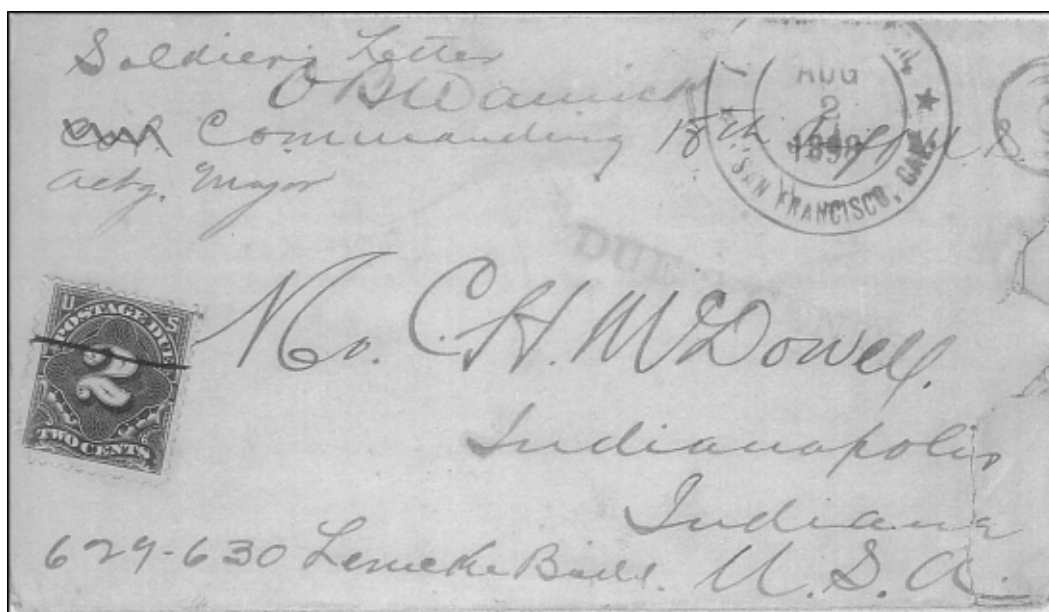 Soldiers Letter
O B Warwick
Commanding 18th U.S.
Actg. Major
AUG
2
1898
SAN FRANCISCO, CAL.
DUE
U S
POSTAGE DUE
2
TWO CENTS
Mr. C. H. McDowell.
Indianapolis
Indiana
629-630 Lemcke Build. U. S. A.